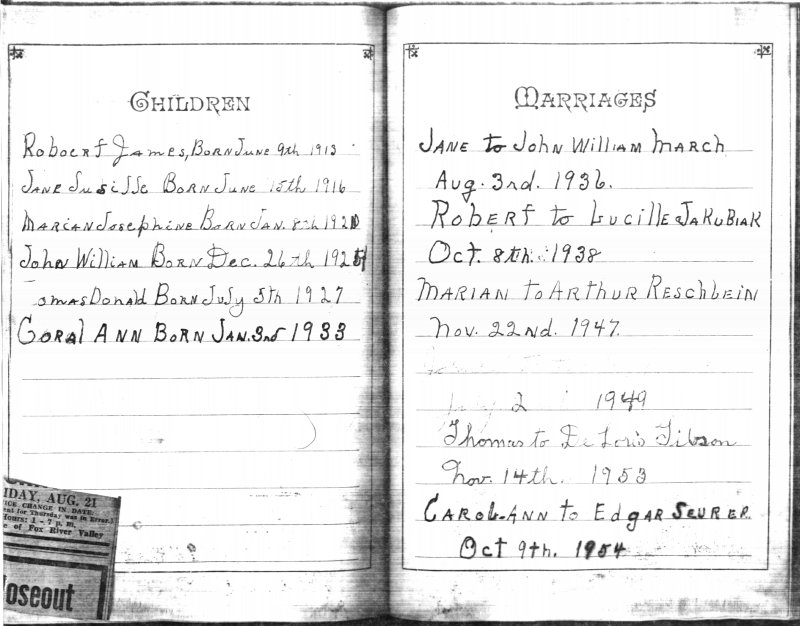 CHILDREN
Roboerf James, Born June 9th 1913
Jane Lusisse Born June 15th 1916
Marian Josephine Born Jan. 8th 1920
John William Born Dec. 26th 1925
omas Donald Born July 5th 1927
Coral Ann Born Jan. 3rd 1933
IDAY, AUG. 21
ICE CHANGE IN DATE:
ent for Thursday was in Error.)
Hours: 1 - 7 p. m.
e of Fox River Valley
loseout
MARRIAGES
Jane to John William March
Aug. 3rd. 1936.
Robert to Lucille Jakubiak
Oct. 8th. 1938
Marian to Arthur Reschlein
Nov. 22nd. 1947.
2 1949
Thomas to De Loris Tibson
Nov. 14th. 1953
Carol-Ann to Edgar Seurer.
Oct 9th. 1954